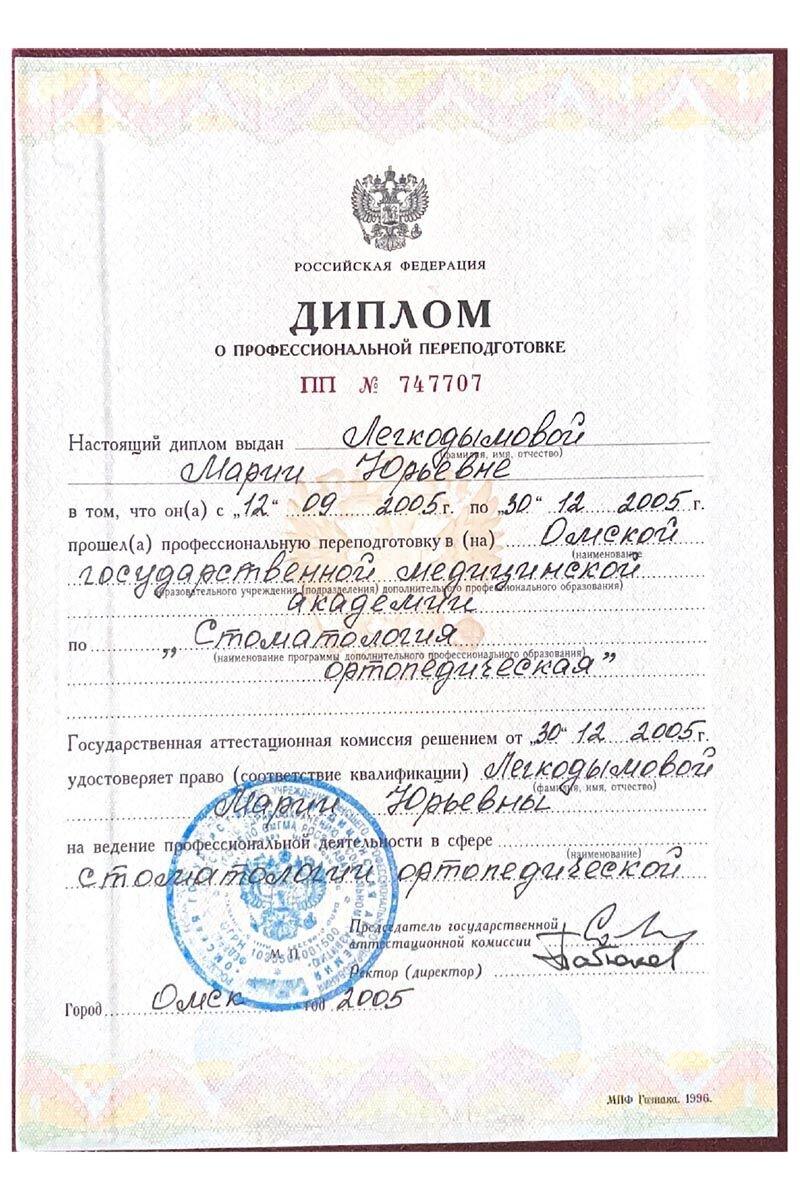 РОССИЙСКАЯ ФЕДЕРАЦИЯ
ДИПЛОМ
О ПРОФЕССИОНАЛЬНОЙ ПЕРЕПОДГОТОВКЕ
ПП № 747707
Настоящий диплом выдан Легкодымовой
(фамилия, имя, отчество)
Марии Юрьевне
в том, что он(а) с „12" 09 2005 г. по „30" 12 2005 г.
прошел(а) профессиональную переподготовку в (на) Омской
(наименование
государственной медицинской
образовательного учреждения (подразделения) дополнительного профессионального образования)
академии
по „Стоматология
(наименование программы дополнительного профессионального образования)
ортопедическая"
Государственная аттестационная комиссия решением от „30" 12 2005 г.
удостоверяет право (соответствие квалификации) Легкодымовой
(фамилия, имя, отчество)
Марии Юрьевны
на ведение профессиональной деятельности в сфере
(наименование)
стоматологии ортопедической
Председатель государственной
аттестационной комиссии
Ректор (директор)
М. П.
Город Омск год 2005
МПФ Гознака. 1996.